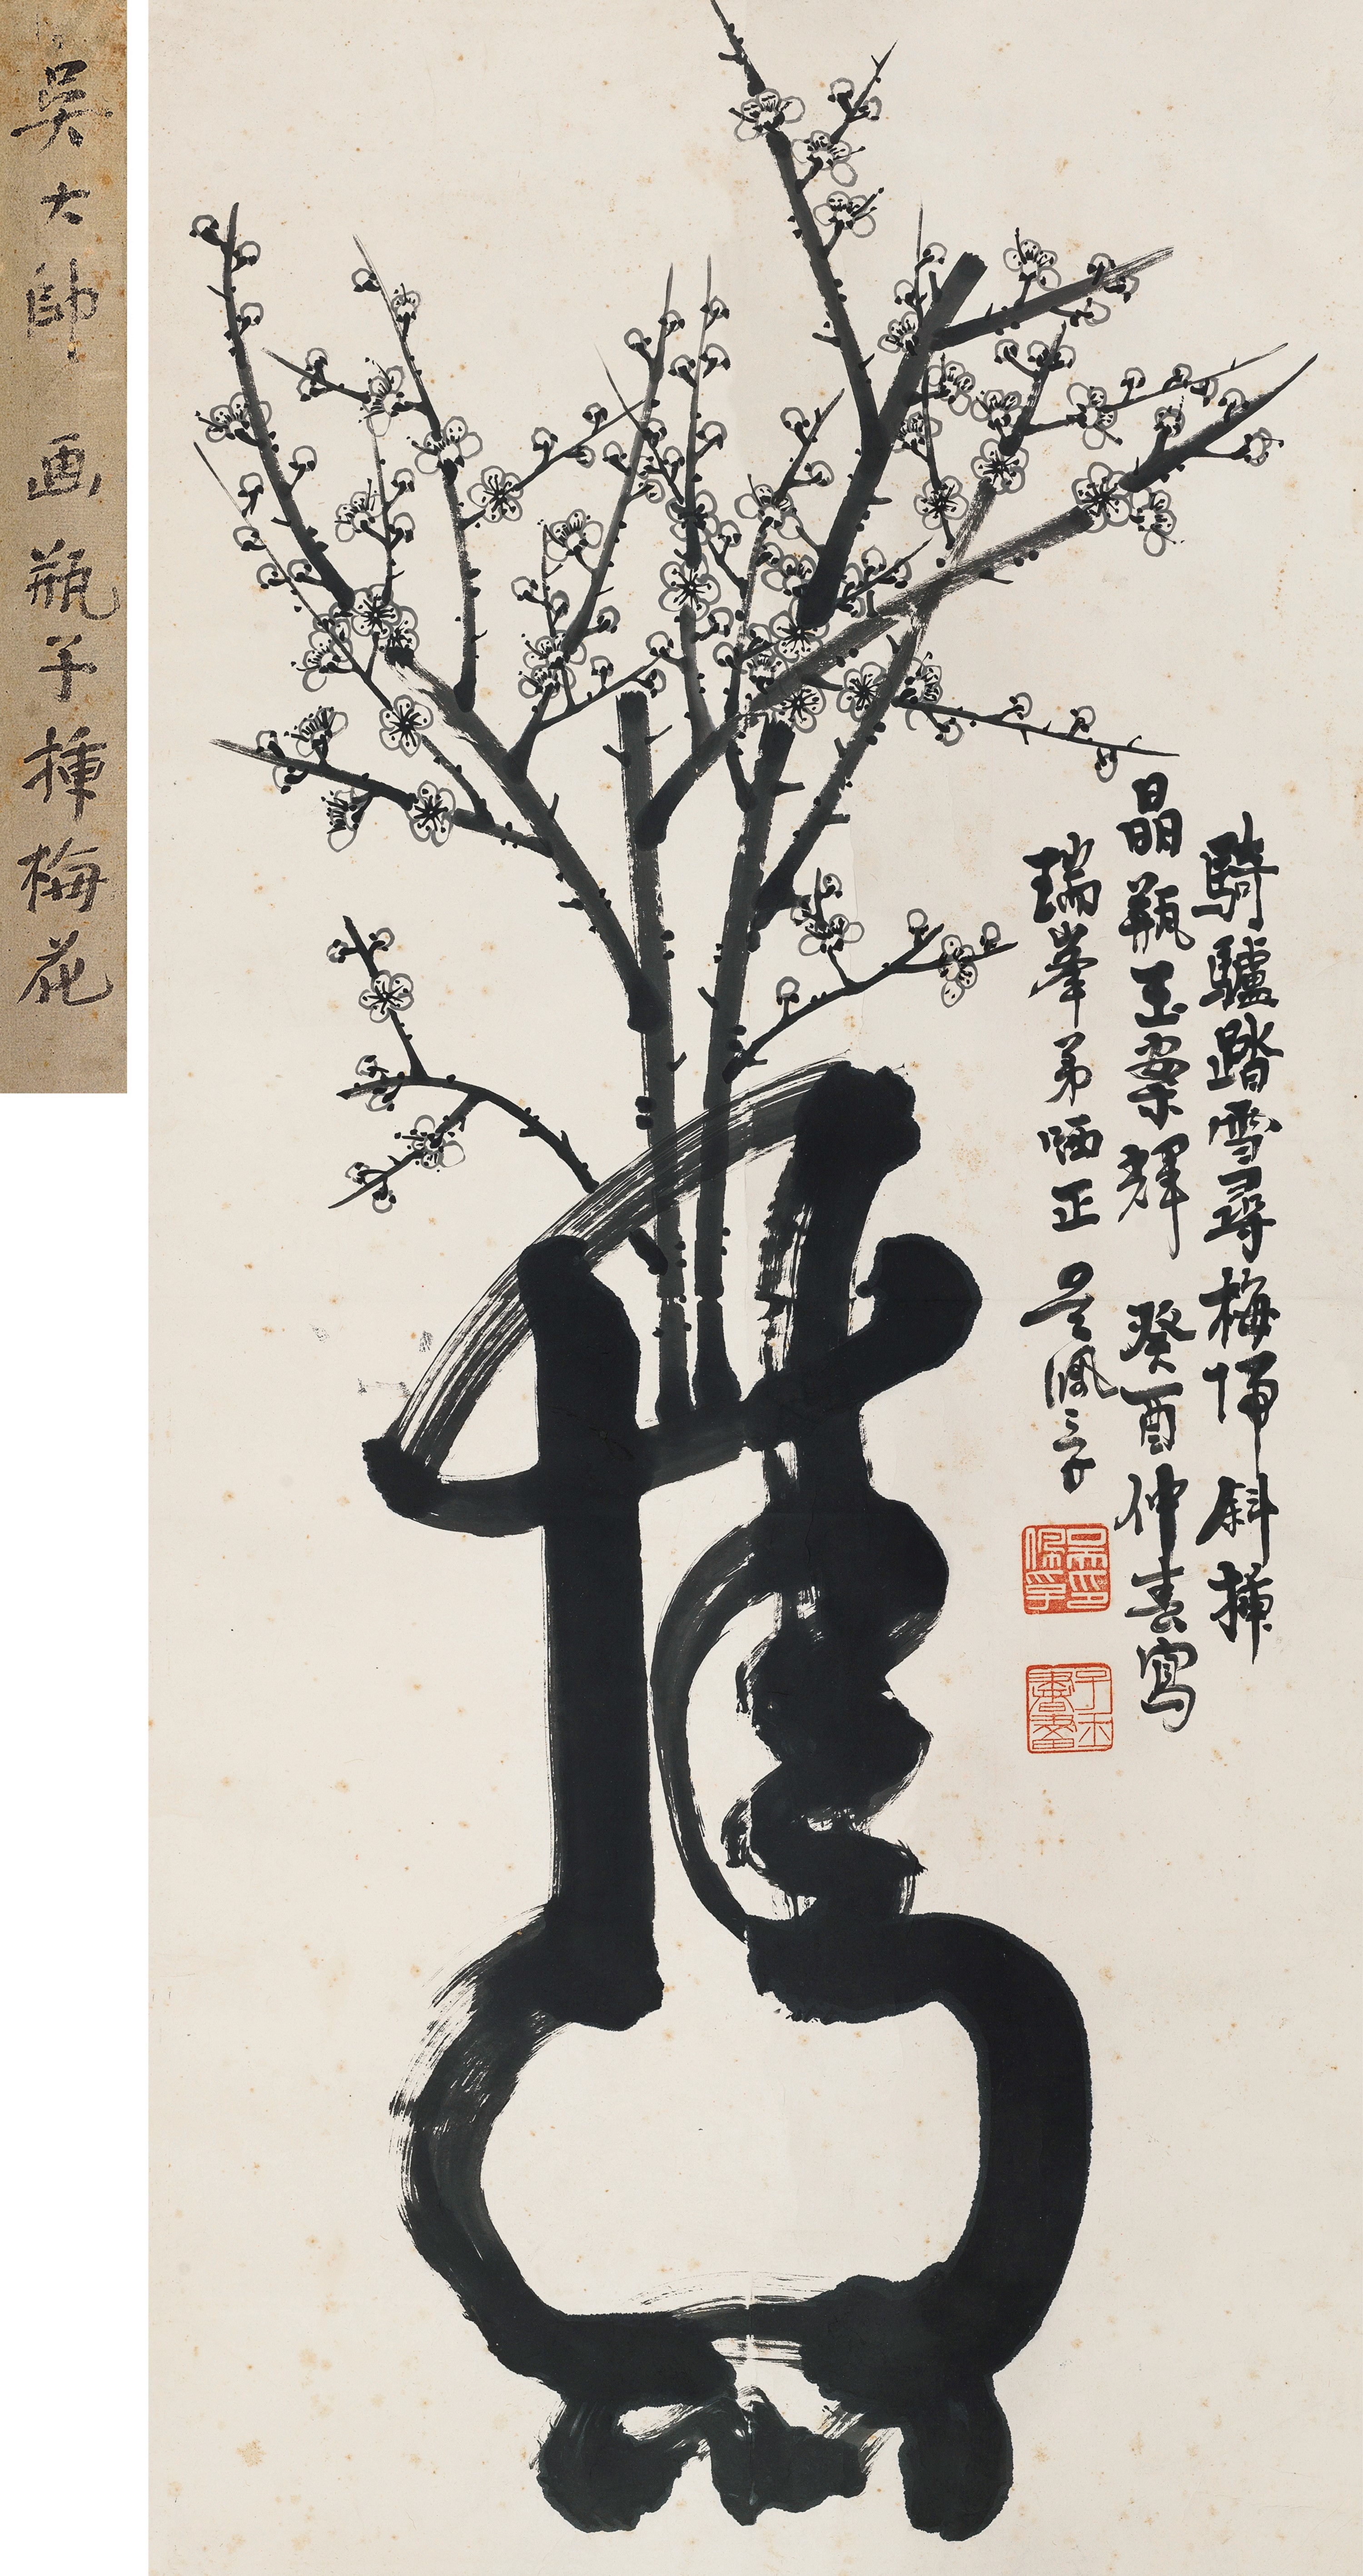 騎驢踏雪尋梅歸斜插
晶瓶玉案輝 癸酉仲春寫
瑞峯弟哂正 吳佩孚
吳佩孚印
子玉書畫
吳大帥 画瓶子插梅花